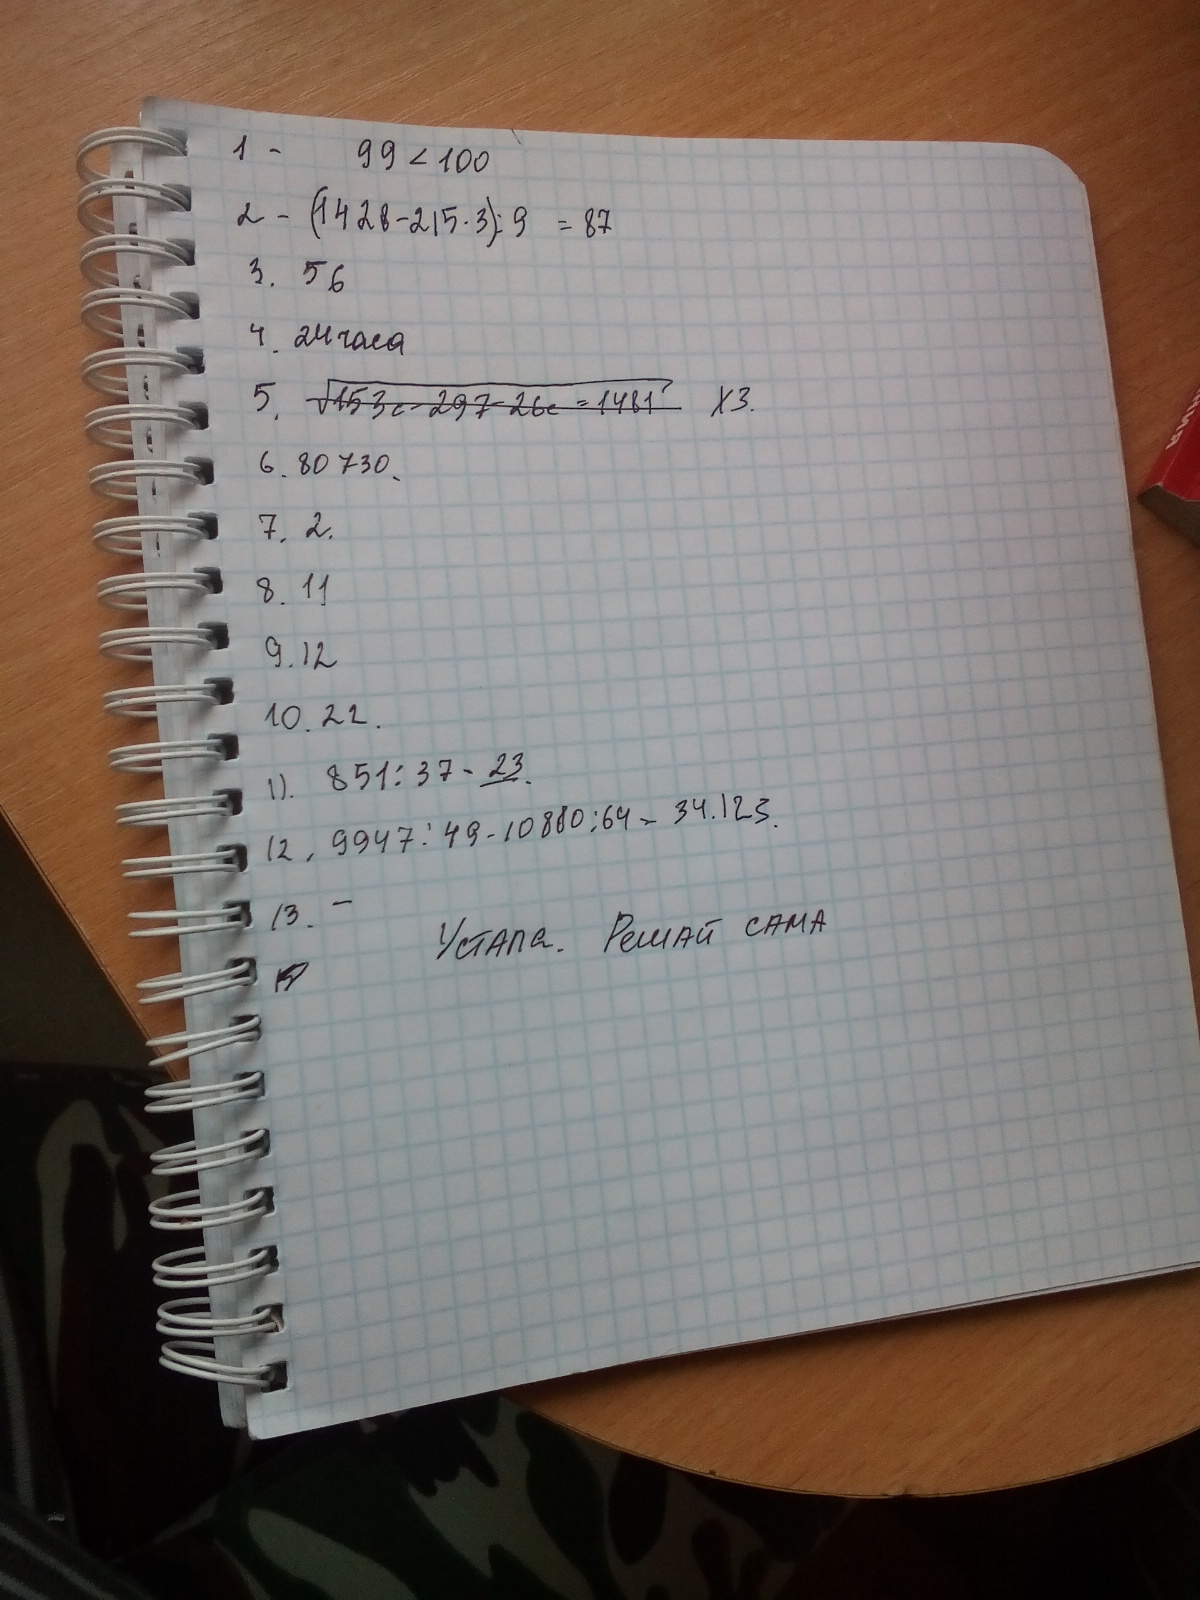 1 - 99 < 100
2 - (1428-215·3):9 = 87
3. 56
4. 24 часа
5. √153c - 297 - 26c = 1481 ХЗ.
6. 80730.
7. 2.
8. 11
9. 12
10. 22.
11. 851:37 - 23.
12. 9947:49 - 10880:64 = 34.123.
13. -
Устала. Решай сама